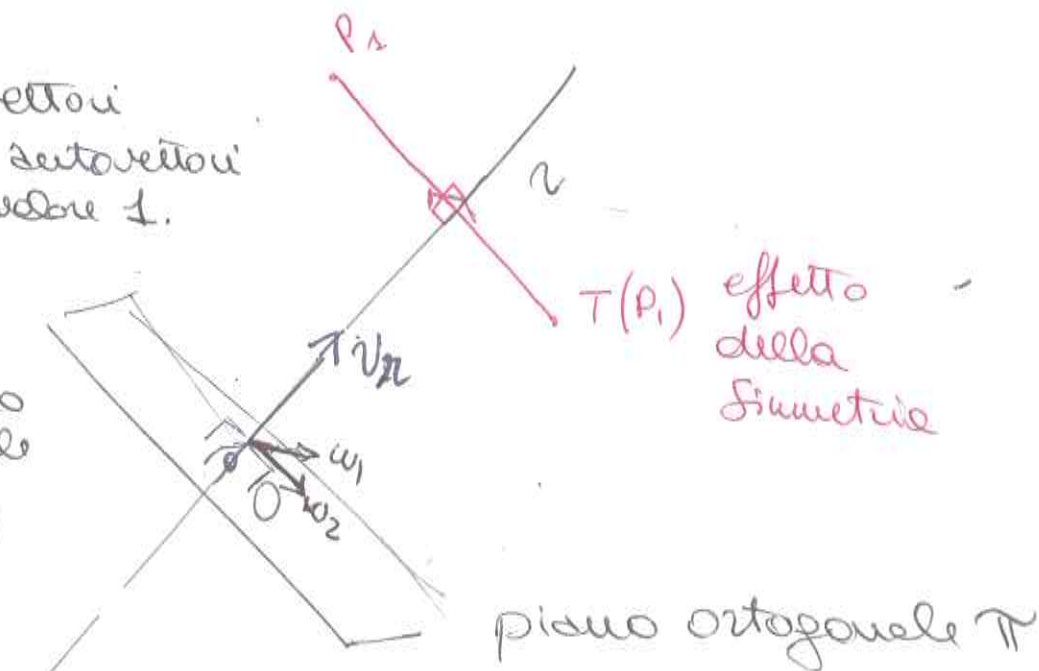 P₁
ettori
autovettori
valore 1.
r
T(P₁) effetto
della
simmetria
v_r
o
le
w₁
w₂
O
piano ortogonale π